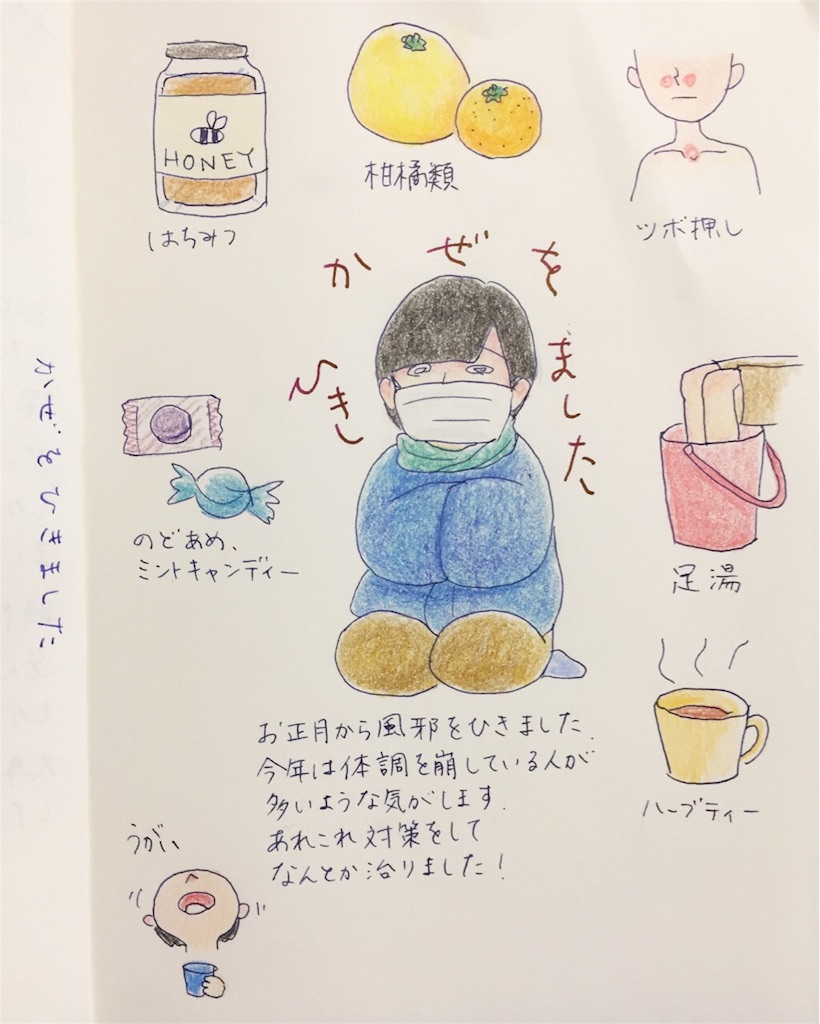 HONEY
はちみつ
柑橘類
ツボ押し
かぜを
ひきました
のどあめ、
ミントキャンディー
足湯
ハーブティー
お正月から風邪をひきました.
今年は体調を崩している人が
多いような気がします.
あれこれ対策をして
なんとか治りました!
うがい
かぜをひきました